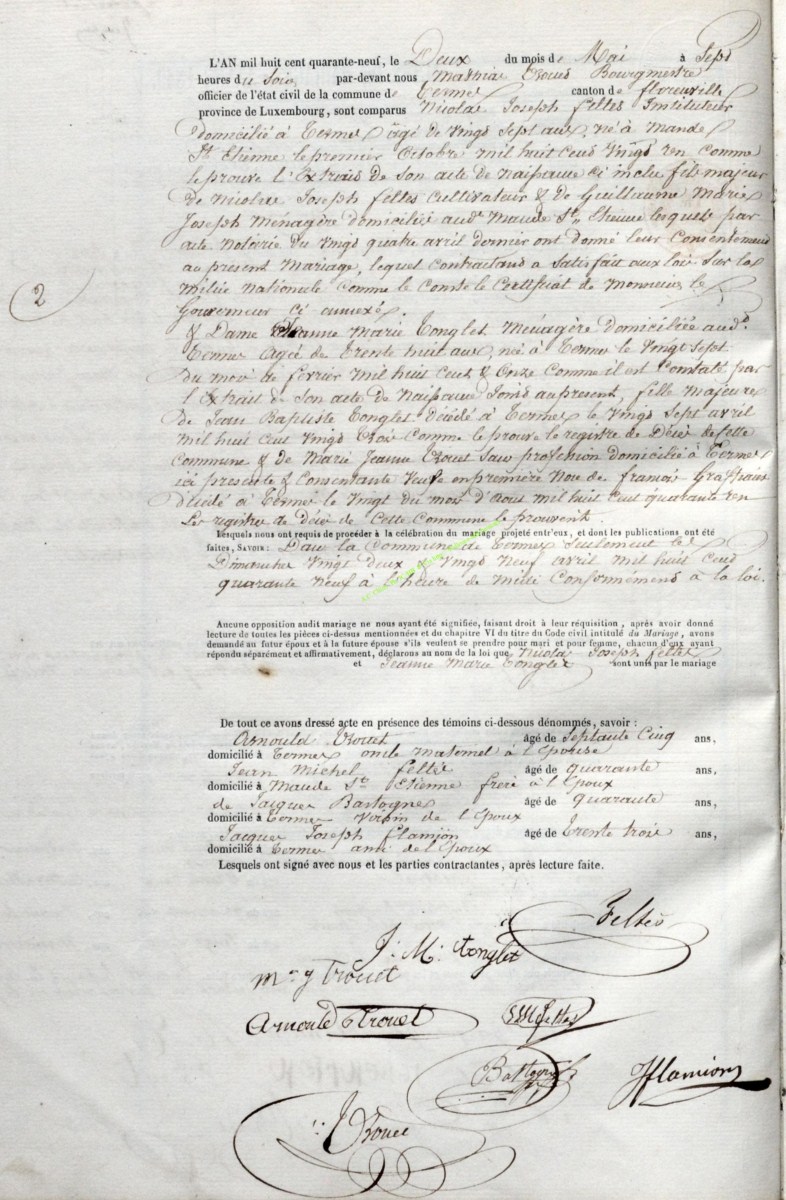 L'AN mil huit cent quarante-neuf, le Deux du mois de Mai à Sept
heures du Soir par-devant nous Mathias Trouet Bourgmestre
officier de l'état civil de la commune de Termes canton de florenville
province de Luxembourg, sont comparus Nicolas Joseph felles Instituteur
domicilié à Termes âgé de vingt Sept ans, né à Mande
St Etienne le premier Octobre mil huit Cent Vingt en comme
le prouve l'Extrait de Son acte de Naissance ci inclu fils majeur
de Nicolas Joseph felles Cultivateur & de Guillaume Marie
Joseph Ménagère domicilié audt Mande St Etienne lequels par
acte Notarié du Vingt quatre avril dernier ont donné leur Consentement
au present Mariage, lequel contractant a Satisfait aux loi Sur la
milice Nationale comme le Comste le Certificat de Monsieur le
Gouverneur ci annexé.
2
& Dame Jeanne Marie Tonglet Ménagère domiciliée audt
Termes agée de Trente huit ans, née à Termes le Vingt Sept
du mois de fevrier mil huit Cent & Onze Comme il est Constaté par
l'Extrait de Son acte de Naissance Joint au present, fille Majeure
de Jean Baptiste Tonglet Décédé à Termes le Vingt Sept avril
mil huit Cent Vingt Trois Comme le prouve le registre de Décès de cette
Commune & de Marie Jeanne Trouet Sans profession domicilié à Termes
ici presente & Consentante Veuve en première Noce de francois
décédé à Termes le Vingt du mois d'Aout mil huit Cent quarante en
Les registre de décè de Cette Commune le prouvent.
Lesquels nous ont requis de procéder à la célébration du mariage projeté entr'eux, et dont les publications ont été
faites, Savoir: Dans la Commune de Termes Seulement les
Dimanches Vingt deux & Vingt Neuf avril mil huit Cent
quarante Neuf à l'heure de Midi Conformement à la loi.
Aucune opposition audit mariage ne nous ayant été signifiée, faisant droit à leur réquisition, après avoir donné
lecture de toutes les pièces ci-dessus mentionnées et du chapitre VI du titre du Code civil intitulé du Mariage, avons
demandé au futur époux et à la future épouse s'ils veulent se prendre pour mari et pour femme, chacun d'eux ayant
répondu séparément et affirmativement, déclarons au nom de la loi que Nicolas Joseph felles
et Jeanne Marie Tonglet sont unis par le mariage
De tout ce avons dressé acte en présence des témoins ci-dessous dénommés, savoir :
Arnould Trouet âgé de Septante Cinq ans,
domicilié à Termes oncle maternel à l'Epouse
Jean Michel felles âgé de quarante ans,
domicilié à Mande St Etienne frère à l'Epoux
de Jacques Bastogne âgé de quarante ans,
domicilié à Termes Voisin de l'Epoux
Jacques Joseph flamion âgé de Trente trois ans,
domicilié à Termes ami de l'Epoux
Lesquels ont signé avec nous et les parties contractantes, après lecture faite.
Felles
J. M. Tonglet
m. j Trouet
Arnould Trouet
JM felles
Bastogne
JJflamion
Trouet